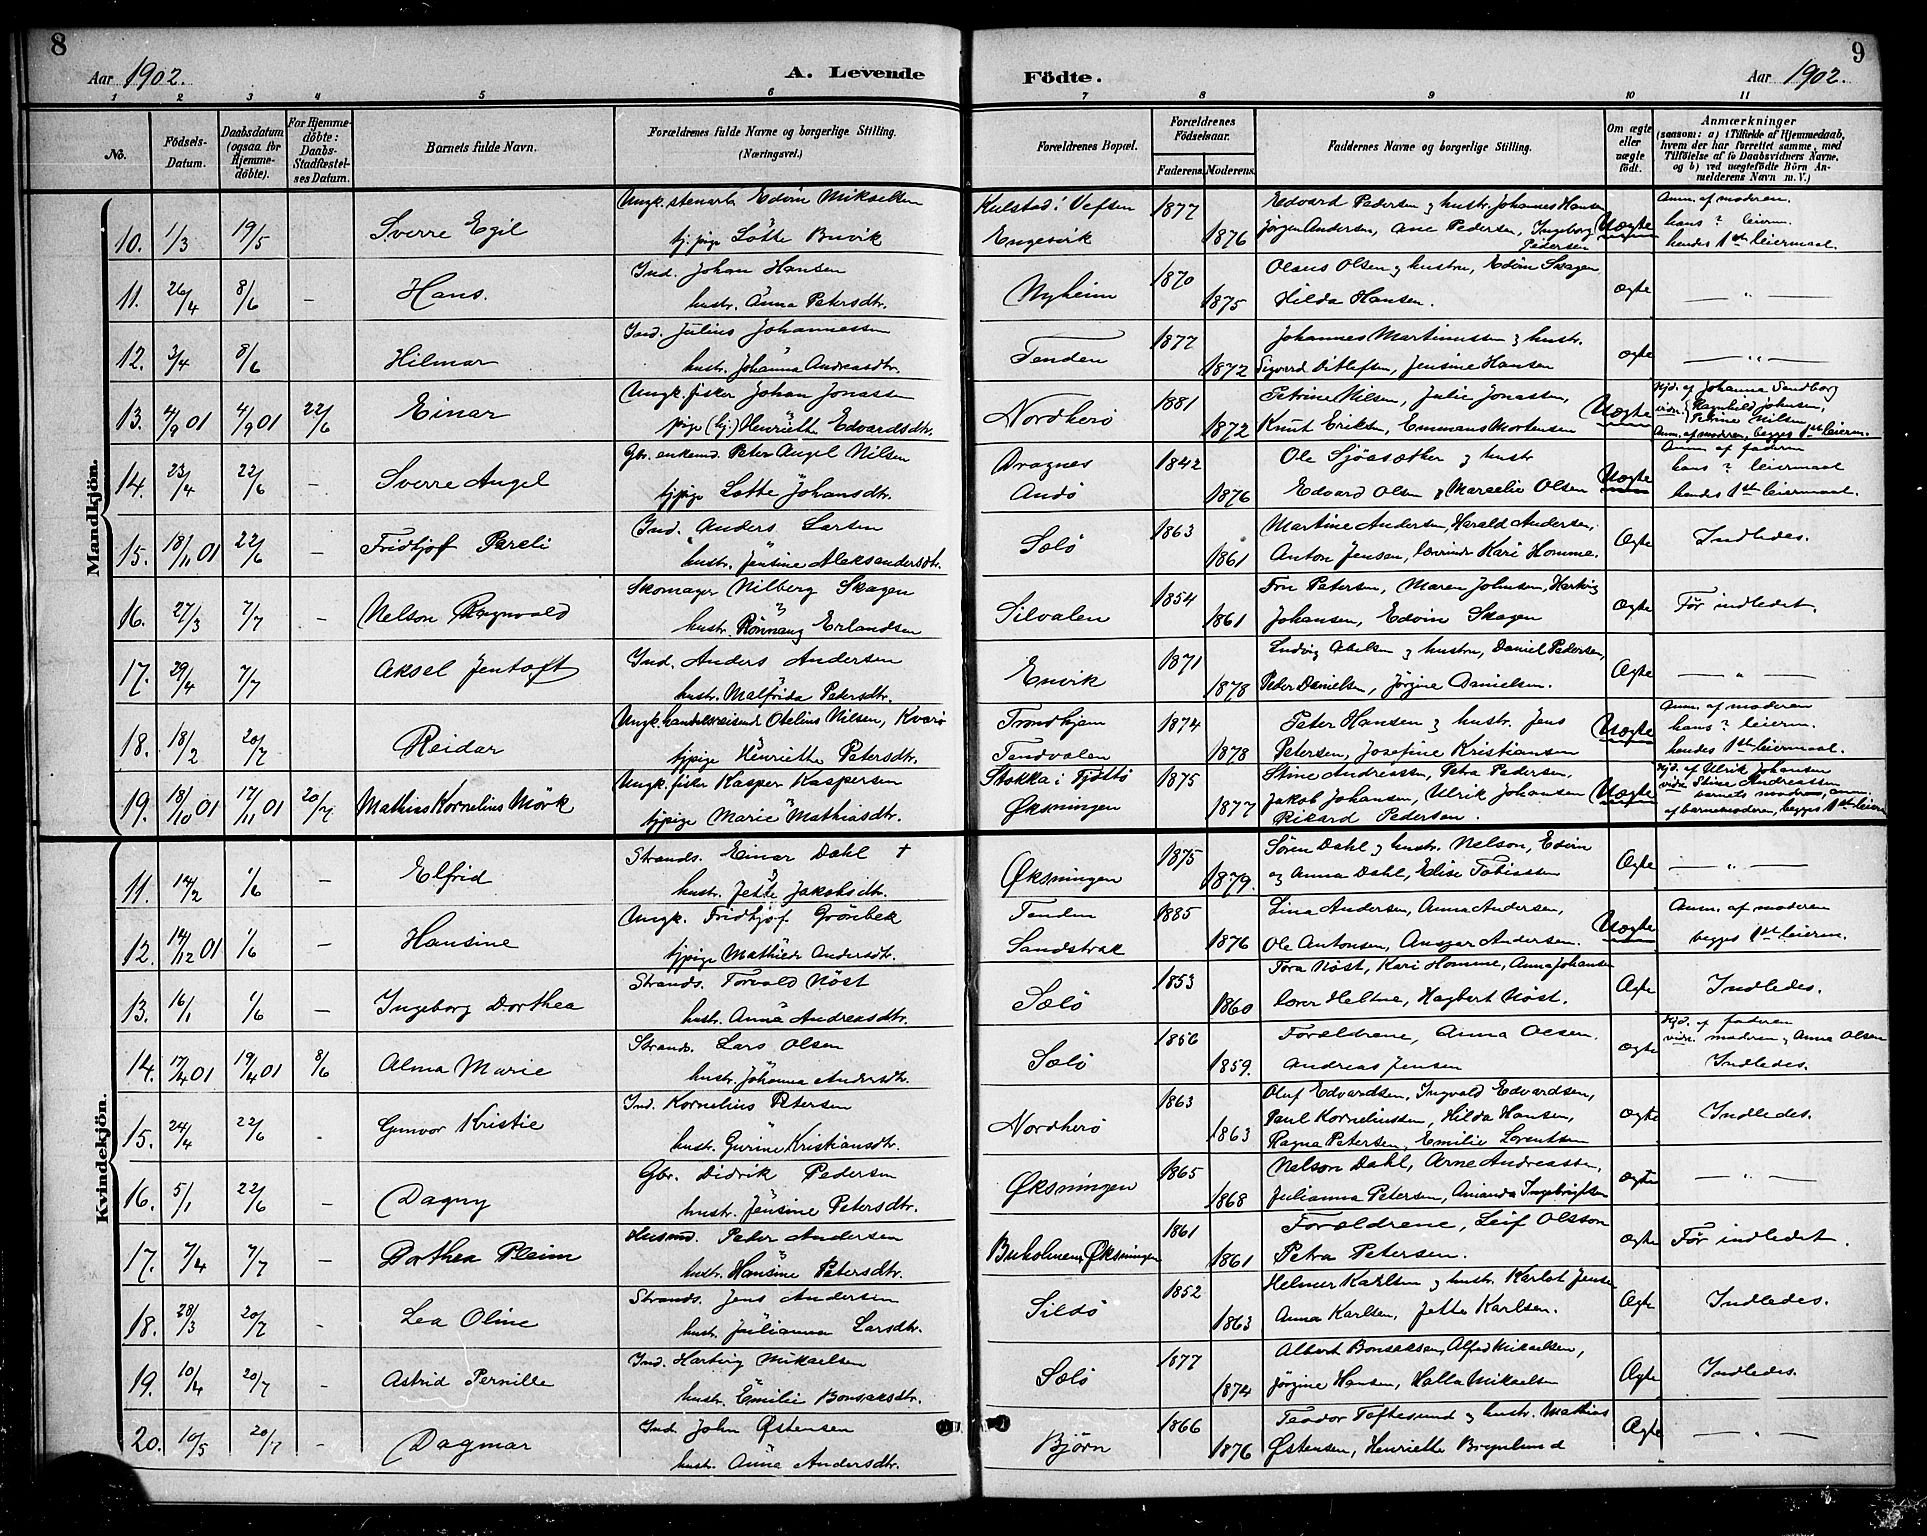 8
Aar 1902.
A. Levende
Födte.
Aar 1902.
9
1 2 3 4 5 6 7 8 9 10 11
No.
Födsels-Datum.
Daabsdatum (ogsaa for Hjemme-döbte).
For Hjemme-döbte: Daabs-Stadfæstel-ses Datum.
Barnets fulde Navn.
Forældrenes fulde Navne og borgerlige Stilling.
(Næringsvei.)
Forældrenes Bopæl.
Forældrenes Födselsaar.
Faderens. Moderens.
Faddernes Navne og borgerlige Stilling.
Om ægte eller uægte födt.
Anmærkninger
(saasom: a) i Tilfælde af Hjemmedaab, hvem der har forrettet samme, med Tilföielse af to Daabsvidners Navne, og b) ved uægtefödte Börn Anmelderens Navn m. V.)
Mandkjön.
10. 1/3 19/5 Sverre Egil
Ungk. stenarb Edvin Mikaelsen
tj. pige Lötte Buvik
Kulstad i Vefsen 1877
Engesvik 1876
Edvard Pedersen og hustr. Johannes Hansen
Jörgen Andersen, Ane Pedersen, Ingeborg Pedersen
Uægte
Anm. af moderen.
hans ? leierm.
hendes 1ste leiermaal.
11. 26/4 8/6 – Hans.
Ind. Johan Hansen
hustr. Anna Petersdtr.
Nyheim 1870 1875
Olaus Olsen og hustru, Edvin Skagen,
Hilda Hansen.
ægte — " —
12. 3/4 8/6 Hilmar
Ind. Julius Johannessen
hustr. Johanna Andreasdtr.
Tenden 1877 1872
Johannes Martinussen og hustr.
Sigvard Ditlefsen, Jensine Hansen
ægte — " —
13. 4/9 01 4/9 01 22/6 Einar
Ungk. fisker Johan Jonassen
pige (tj.) Henriette Edvardsdtr.
Nordherö 1881 1872
Petrine Nilsen, Julie Jonassen,
Knut Eriksen, Emmans Mortensen
Uægte
Hjd. af Johanna Sandborg
vidn. Ragnhild Johnsen,
Petrine Nilsen
Anm. af moderen, begges 1ste leierm.
14. 23/4 22/6 – Sverre Angel
Gbr. enkemd. Peter Angel Nilsen
tjpige Lotte Johansdtr.
Dragnes 1842
Andö 1876
Ole Sjöasæther og hustr
Edvard Olsen og Marcelie Olsen
Uægte
Anm. af faderen
hans ? leiermaal
hendes 1ste leiermaal.
15. 18/11 01 22/6 – Fridtjof Pareli
Ind. Anders Larsen
hustr. Jensine Aleksandersdtr.
Sölö 1863 1861
Martine Andersen, Harald Andersen,
Anton Jensen, lærerinde Kari Homme.
Ægte Indledes.
16. 27/3 7/7 Nelson Ragnvald
Skomager Nilberg Skagen
hustr. Rönnaug Erlandsen
Silvalen 1854 1861
Fru Petersen, Maren Johnsen, Hartvig
Johansen, Edvin Skagen
ægte Før indledet.
17. 29/4 7/7 Aksel Jentoft
Ind. Anders Andersen
hustr. Malfrida Petersdtr.
Envik 1871 1878
Ludvig Abelsen og hustru, Daniel Pedersen,
Peter Danielsen, Jørgine Danielsen.
Ægte — " —
18. 18/2 20/7 Reidar
Ungk. handelsreisende Otelius Nilsen, Kvarö
tjpige Henriette Petersdtr.
Trondhjem 1874
Tendvalen 1878
Peter Hansen og hustr. Jens
Petersen, Josefine Kristiansen
Uægte
Anm. af moderen
hans ? leierm.
hendes 1ste leiermaal.
19. 18/10 01 17/11 01 20/7 Mathias Kornelius Mörk
Ungk. fisker Kasper Kaspersen
tjpige Marie Mathiasdtr.
Stokka i Tjøttö 1875
Øksningen 1877
Stine Andreassen, Petra Pedersen
Jakob Johansen, Ulrik Johansen
Rikard Pedersen.
Uægte
Hjd. af Ulrik Johansen
vidn. Stine Andreassen
barnets moder, anm.
af barnemoderen, begges 1ste leierm
Kvindekjön.
11. 14/2 1/6 – Elfrid
Strands. Einar Dahl †
hustr. Jette Jakobsdtr.
Øksningen 1875 1879.
Sören Dahl og hustr. Nelson, Edvin
og Anna Dahl, Elise Tobiassen
Ægte — " —
12. 14/12 01 1/6 – Hansine
Ungk. Fridtjof Grönbek
tjpige Mathilde Andersdtr.
Tenden 1885
Sandstrak 1876
Lina Andersen, Anna Andersen,
Ole Antonsen, Ansgar Andersen.
Uægte
Anm. af moderen
begges 1ste leierm.
13. 16/1 1/6 – Ingeborg Dorthea
Strands. Torvald Nöst
hustr. Anna Andreasdtr.
Sölö 1853 1860
Tora Nöst, Kari Homme, Anna Johansen
lærer Heltne, Hagbert Nöst.
Ægte Indledes.
14. 17/4 01 19/4 01 8/6 Alma Marie
Strands. Lars Olsen
hustr. Johanna Andersdtr.
Sölö 1856 1859.
Forældrene, Anna Olsen.
Andreas Jensen
ægte
Hjd. af faderen
vidn. moderen og Anna Olsen
Indledes.
15. 24/4 22/6 – Gunvor Kristie
Ind. Kornelius Petersen
hustr. Gurine Kristiansdtr.
Nordherö 1863 1863
Oluf Edvardsen, Ingvald Edvardsen,
Paul Korneliussen, Hilda Hansen,
Ragna Petersen, Emilie Lorentsen
ægte Indledes.
16. 5/1 22/6 – Dagny
Gbr. Didrik Pedersen
hustr. Jensine Petersdtr.
Øksningen 1865 1868
Nelson Dahl, Arne Andreassen,
Julianna Petersen, Amanda Ingebrigtsen
ægte — " —
17. 7/4 7/7 – Dorthea Pleim
Husmd. Peder Andersen
hustr. Hansine Petersdtr.
Buholmen, Øksningen 1861 1861
Forældrene, Leif Olsson
Petra Petersen.
ægte Før indledet.
18. 28/3 20/7 – Lea Oline
Strands. Jens Andersen
hustr. Julianna Larsdtr.
Sildö 1852 1863
Helmer Karlsen og hustr. Karlot Jensen
Anna Karlsen, Jette Karlsen.
Ægte Indledes.
19. 10/4 20/7 – Astrid Pernille
Ind. Hartvig Mikaelsen
hustr. Emilie Bonsaksdtr.
Sölö 1877 1874
Albert Bonsaksen, Alfred Mikaelsen,
Jørgine Hansen, Halla Mikaelsen
Ægte Indledes.
20. 10/5 20/7 – Dagmar
Ind John Østensen
hustr. Anna Andersdtr.
Bjørn 1866 1876
Teodor Toftesund og hustr. Mathias
Østensen, Henriette Brynlund
Ægte — " —